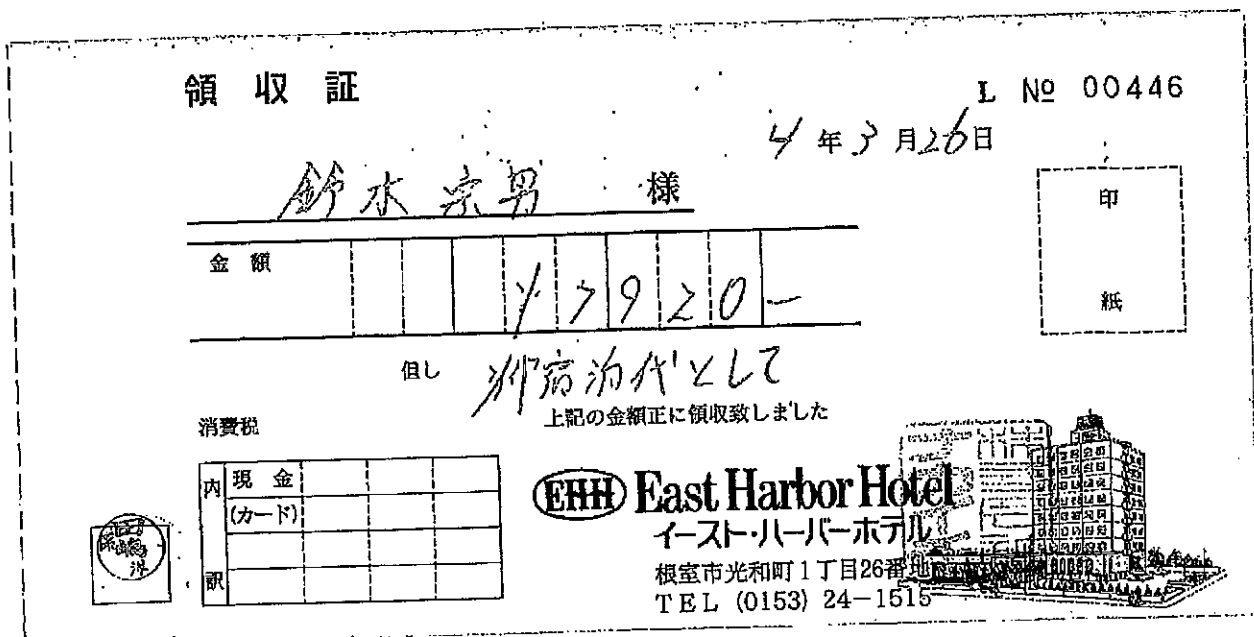 領収証
L № 00446
4年3月26日
鈴木宗男 様
金額
¥7920-
但し 御宿泊代として
上記の金額正に領収致しました
消費税
内訳
現金
(カード)
EHH East Harbor Hotel
イースト・ハーバーホテル
根室市光和町1丁目26番地
TEL (0153) 24-1515
印紙